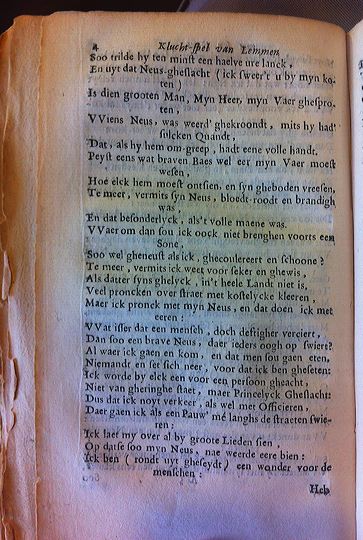 4 Klucht-spel van Lemmen
Soo trilde hy ten minst een haelve ure lanck,
En uyt dat Neus-gheslacht (ick sweer't u by myn ko-
ten)
Is dien grooten Man, Myn Heer, myn Vaer ghespro-
ten,
VViens Neus, was weerd' ghekroondt, mits hy had'
sulcken Quandt,
Dat, als hy hem om-greep, hadt eene volle handt.
Peyst eens wat braven Baes wel eer myn Vaer moest
wesen,
Hoe elck hem moest ontsien, en syn gheboden vreesen,
Te meer, vermits syn Neus, bloedt-roodt en brandigh
was,
En dat besonderlyck, als't volle maene was.
VVaerom dan sou ick oock niet brenghen voorts een
Sone,
Soo wel gheneust als ick, ghecoulereert en schoone?
Te meer, vermits ick weet voor seker en ghewis,
Als datter syns ghelyck, in't heele Landt niet is,
Veel proncken over straet met kostelycke kleeren,
Maer ick pronck met myn Neus, en dat doen ick met
eeren:
VVat isser dat een mensch, doch destigher verciert,
Dan soo een brave Neus, daer ieders oogh op swiert?
Al waer ick gaen en kom, en dat men sou gaen eten,
Niemandt en set sich neer, voor dat ick ben gheseten:
Ick worde by elck een voor een persoon gheacht,
Niet van gheringhe staet, maer Princelyck Gheslacht:
Dus dat ick noyt verkeer, als wel met Officieren,
Daer gaen ick als een Pauw' mé langhs de straeten swie-
ren:
Ick laet my over al by groote Lieden sien,
Op datse soo myn Neus, nae weerde eere bien:
Ick ben (rondt uyt gheseydt) een wonder voor de
menschen:
Heb